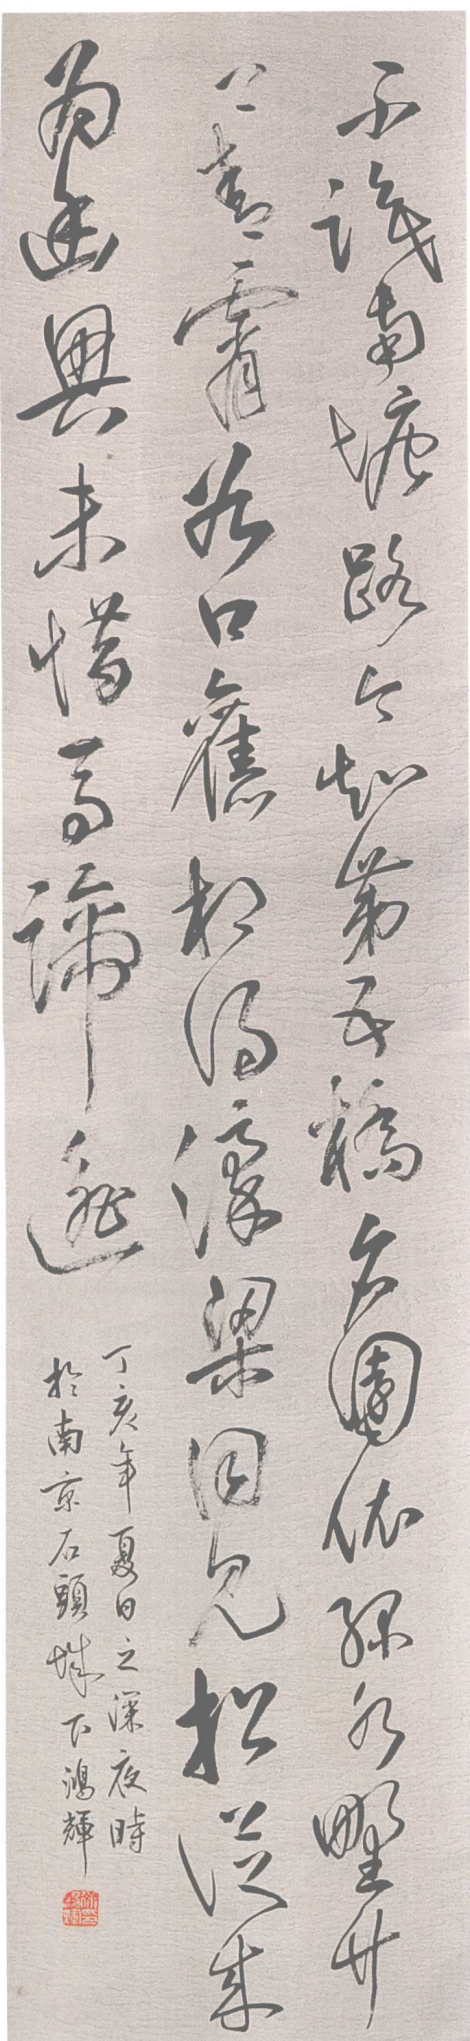 不識南塘路今知第五橋名園依綠水野竹
上青霄谷口舊相得濠梁同見招從來
為幽興未惜馬蹄遙
丁亥年夏日之深夜時
於南京石頭城下鴻輝